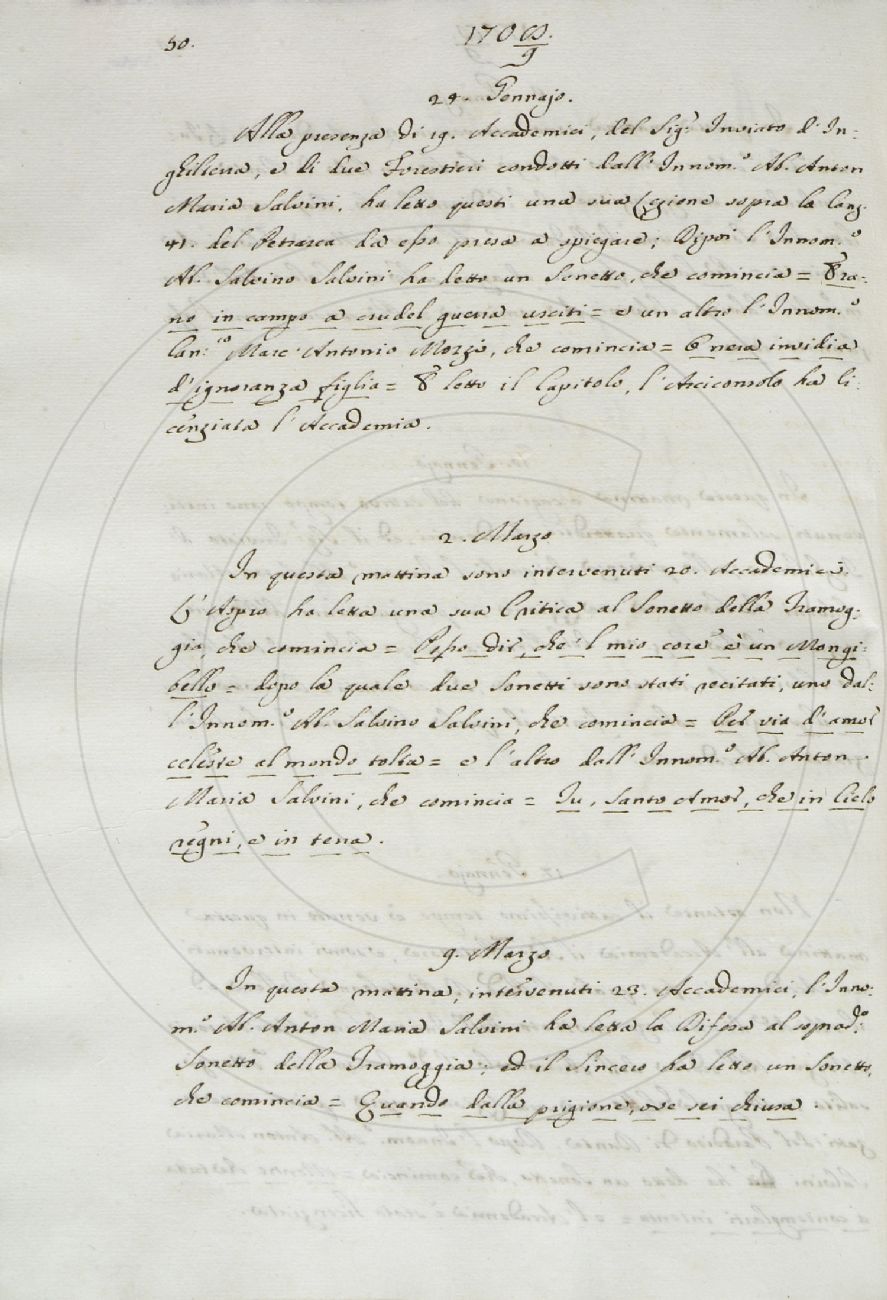 50.
1708/9
24. Gennajo.
Alla presenza di 19. Accademici, del Sig.r Inviato d'In=
ghilterra, e di due Forestieri condotti dall'Innom.o Ab. Anton
Maria Salvini, ha letto questi una sua Lezione sopra la Canz.
41. del Petrarca da esso presa a spiegare; Dipoi l'Innom.o
Ab. Salvino Salvini ha detto un Sonetto, che comincia = Era=
no in campo a crudel guerra usciti = e un altro l'Innom.o
Can:co Marc'Antonio Mozzi, che comincia = O nera invidia
d'ignoranza figlia = E letto il Capitolo, l'Arciconsolo ha li=
cenziata l'Accademia.
2. Marzo
In questa mattina sono intervenuti 20. Accademici.
L'Aspro ha letta una sua Critica al Sonetto della Tramog=
gia, che comincia = Posso dir, che 'l mio core è un Mongi=
bello = dopo la quale due Sonetti sono stati recitati, uno dal=
l'Innom.o Ab. Salvino Salvini, che comincia = Per via d'amor
celeste al mondo tolta = e l'altro dall'Innom.o Ab. Anton
Maria Salvini, che comincia = Tu, santo Amor, che in Cielo
regni, e in terra.
9. Marzo
In questa mattina, intervenuti 23. Accademici, l'Inno=
m.o Ab. Anton Maria Salvini ha letta la Difesa al soprad.o
Sonetto della Tramoggia; ed il Sincero ha letto un Sonetto,
che comincia = Quando dalla prigione, ove sei chiusa.